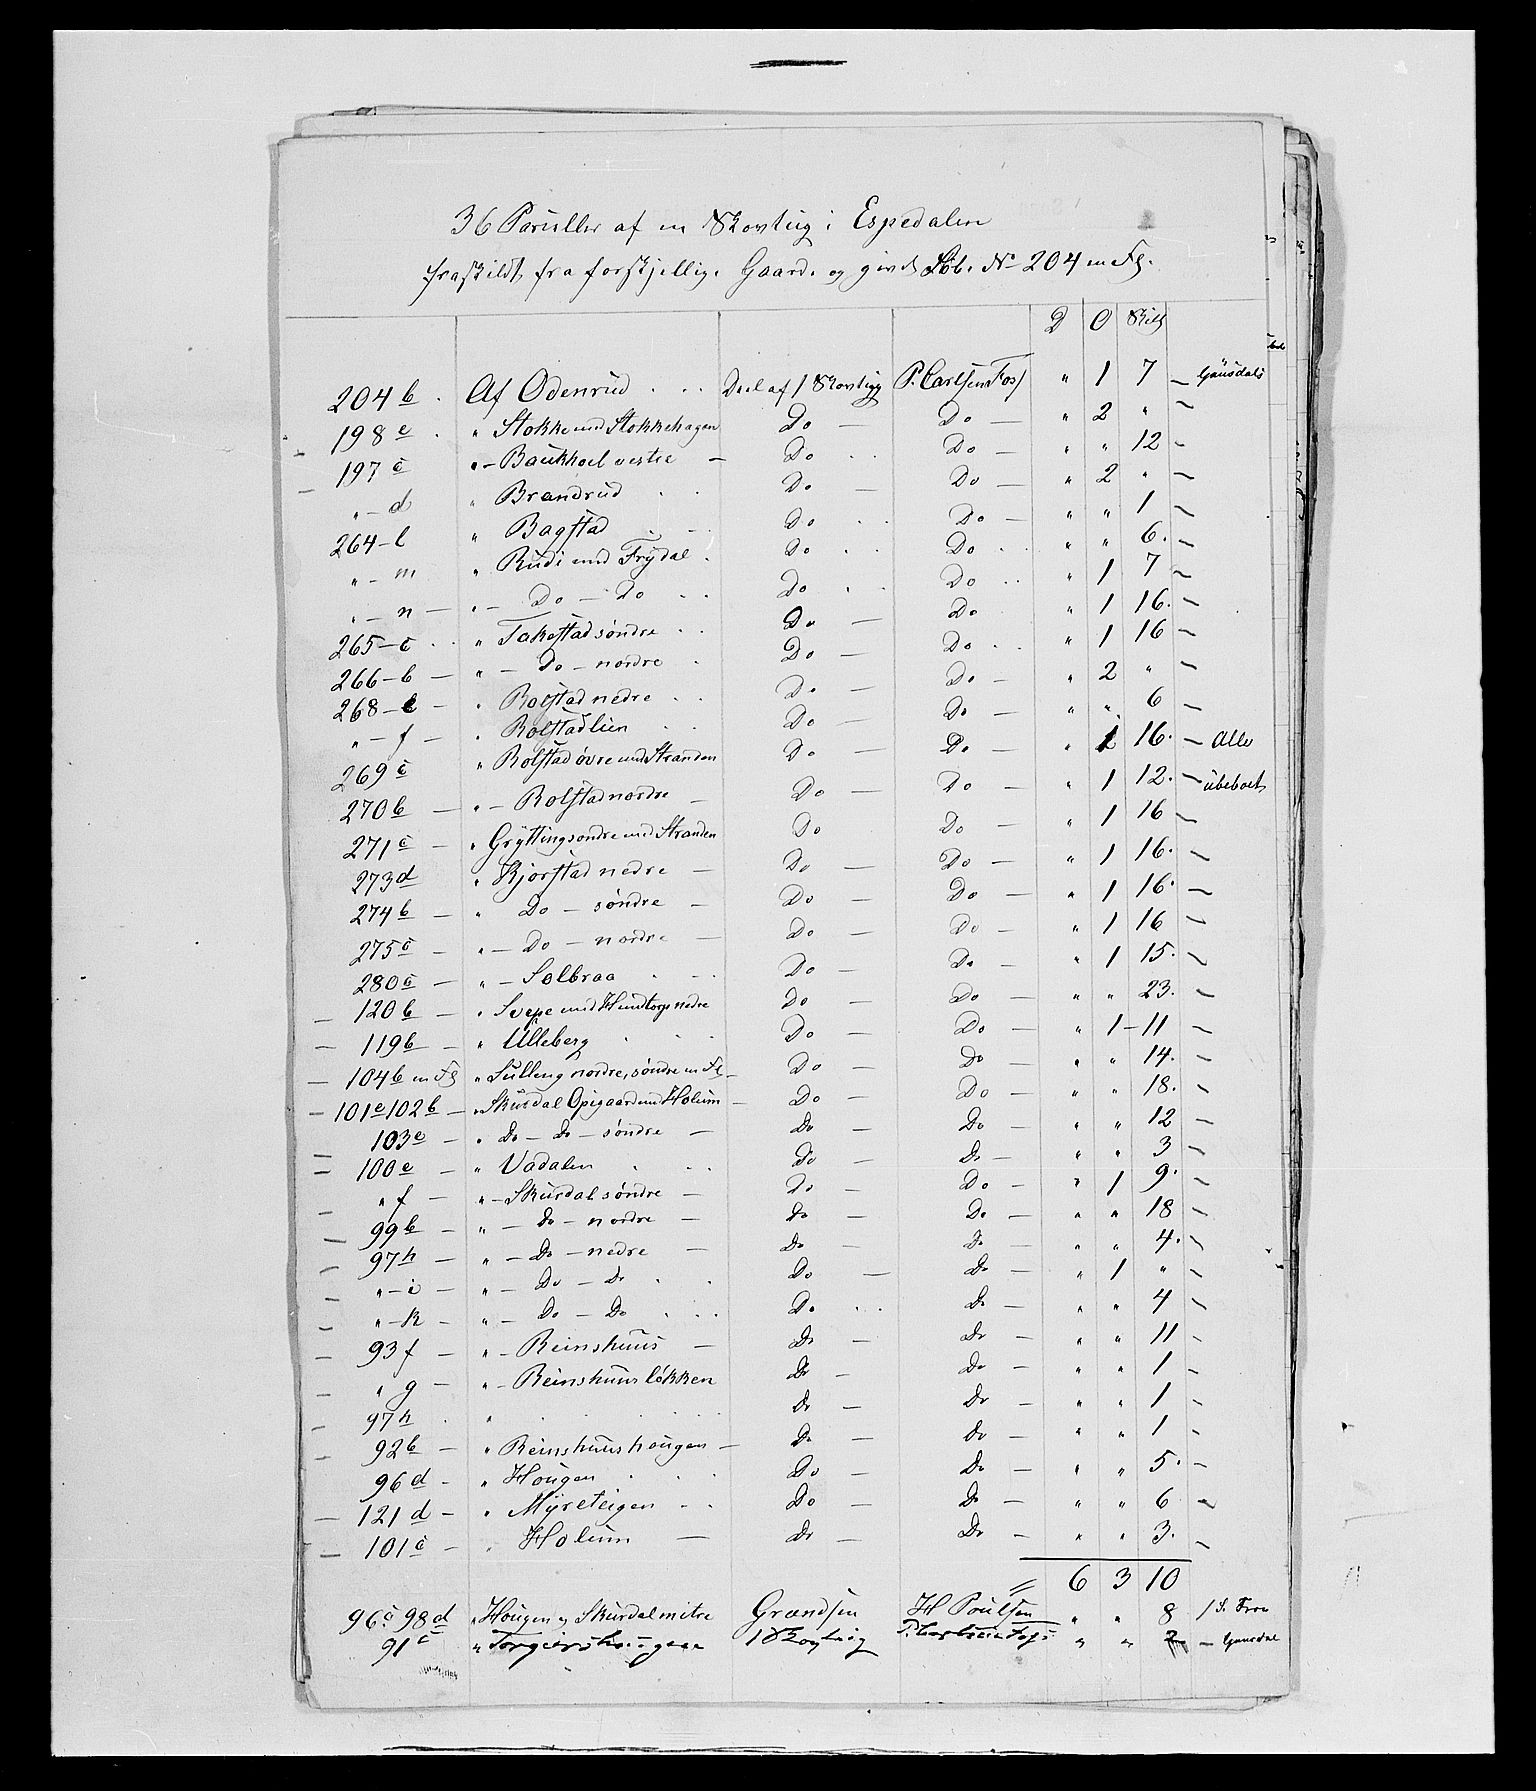 36 Parceller af en Skovteig i Espedalen
fraskildt fra forskjellige Gaarde og givet Løb. No 204 m Fl.
D O Skill
204 b. Af Odenrud . . . Deel af 1 Skovteig P. Carlsen Foss " 1 7 — Gausdals
198 e . " Stokke med Stokkehagen Do — Do — " 2 " —
197 c " — Baukhoel vestre — Do . . Do — " " 12 —
" — d " Brandrud . . Do — Do — " 2 " —
264 — l " Bagstad . — . Do . . Do — " " 1 —
" — m " Rudi med Frydal . Do . . Do . . " " 6. —
" — n — " — Do — Do . . Do . . Do . . " 1 7 —
265 — c . . " Tokestad søndre . . Do — Do " 1 16. —
266 — b — " — Do — nordre . Do — Do . . " 1 16 —
268 — e — " Rolstad nedre . . Do — Do — " 2 " —
" — f — " Rolstadlien . . Do — Do — " " 6 —
269 c " Rolstad øvre med Stranden Do — Do — " 1 16. — Alle
270 b — " — Rolstad nordre — Do — Do — " 1 12. — ubeboet
271 c — " Gryttingsøndre med Stranden Do Do — " 1 16 —
273 d " Kjorstad nedre — Do — Do — " 1 16. —
274 b — " Do — søndre — Do — Do — " 1 16. —
275 c — " — Do — nordre — Do — Do — " 1 16 —
280 c — " — Solbraa . — . Do — Do — " 1 15. —
— 120 b — " Svepe med Hundtorp nedre Do — Do — " " 23. —
— 119 b — " Ulleberg . . . Do — Do — " 1 — 11 —
— 104 b m Fl " Sulleng nordre, søndre m Fl — Do — Do — " " 14. —
— 101 e 102 b — " Skurdal Opigaard med Holum — Do — Do — " " 18. —
— 103 e — " Do — Do — søndre — Do — Do — " " 12 —
= 100 e — " Vadalen . . . Do — Do — " " 3 —
— " f — " — Skurdal søndre — Do — Do — " 1 9. —
— 99 b — " — Do — nordre — Do — Do — " " 18 —
— 97 h — " — Do — nedre — Do — Do — " " 4. —
— " — i — " — Do — Do . . Do — Do — " 1 " —
— " — k — " — Do — Do . . . Do . . . Do — " " 4 —
— 93 f — " — Reinshuus — Do — Do — " " 11 —
— " g — " — Reinshuus løkken Do — Do — " " 1 —
— 97 h . " . . . . . Do — Do — " " 1 —
— 92 b — " Reinshuushougen — Do — Do — " " 1 —
96 d — " Hougen . . . Do — Do — " " 5. —
— 121 d — " Myreteigen . . Do — Do — " " 6 —
— 101 c — " Holum — Do — Do — " " 3. —
6 3 10
96 c 98 d " Hougen og Skurdal mitre Grændsen H Poulsen " " 8 / S. Fron
91 c " Torgiershougene 1 Skovteig P. Carlsen Foss " " 2 — Gausdal